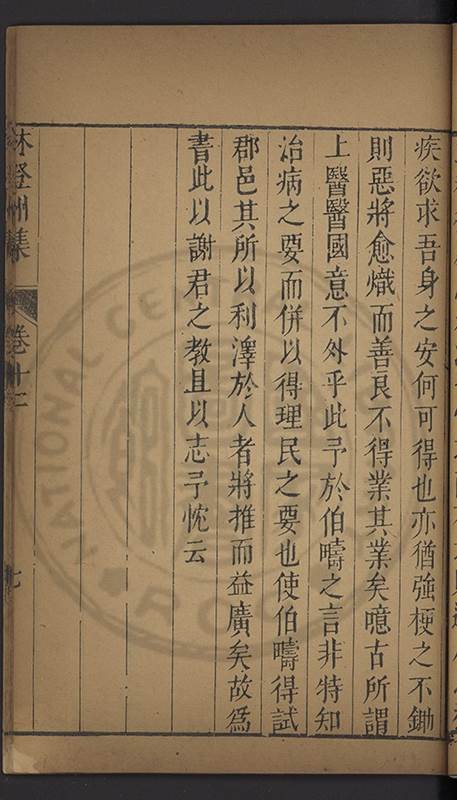 疾欲求吾身之安何可得也亦猶強梗之不鋤
則惡將愈熾而善良不得業其業矣噫古所謂
上醫醫國意不外乎此予於伯疇之言非特知
治病之要而併以得理民之要也使伯疇得試
郡邑其所以利澤於人者將推而益廣矣故爲
書此以謝君之教且以志予忱云
林登州集 卷十二 七